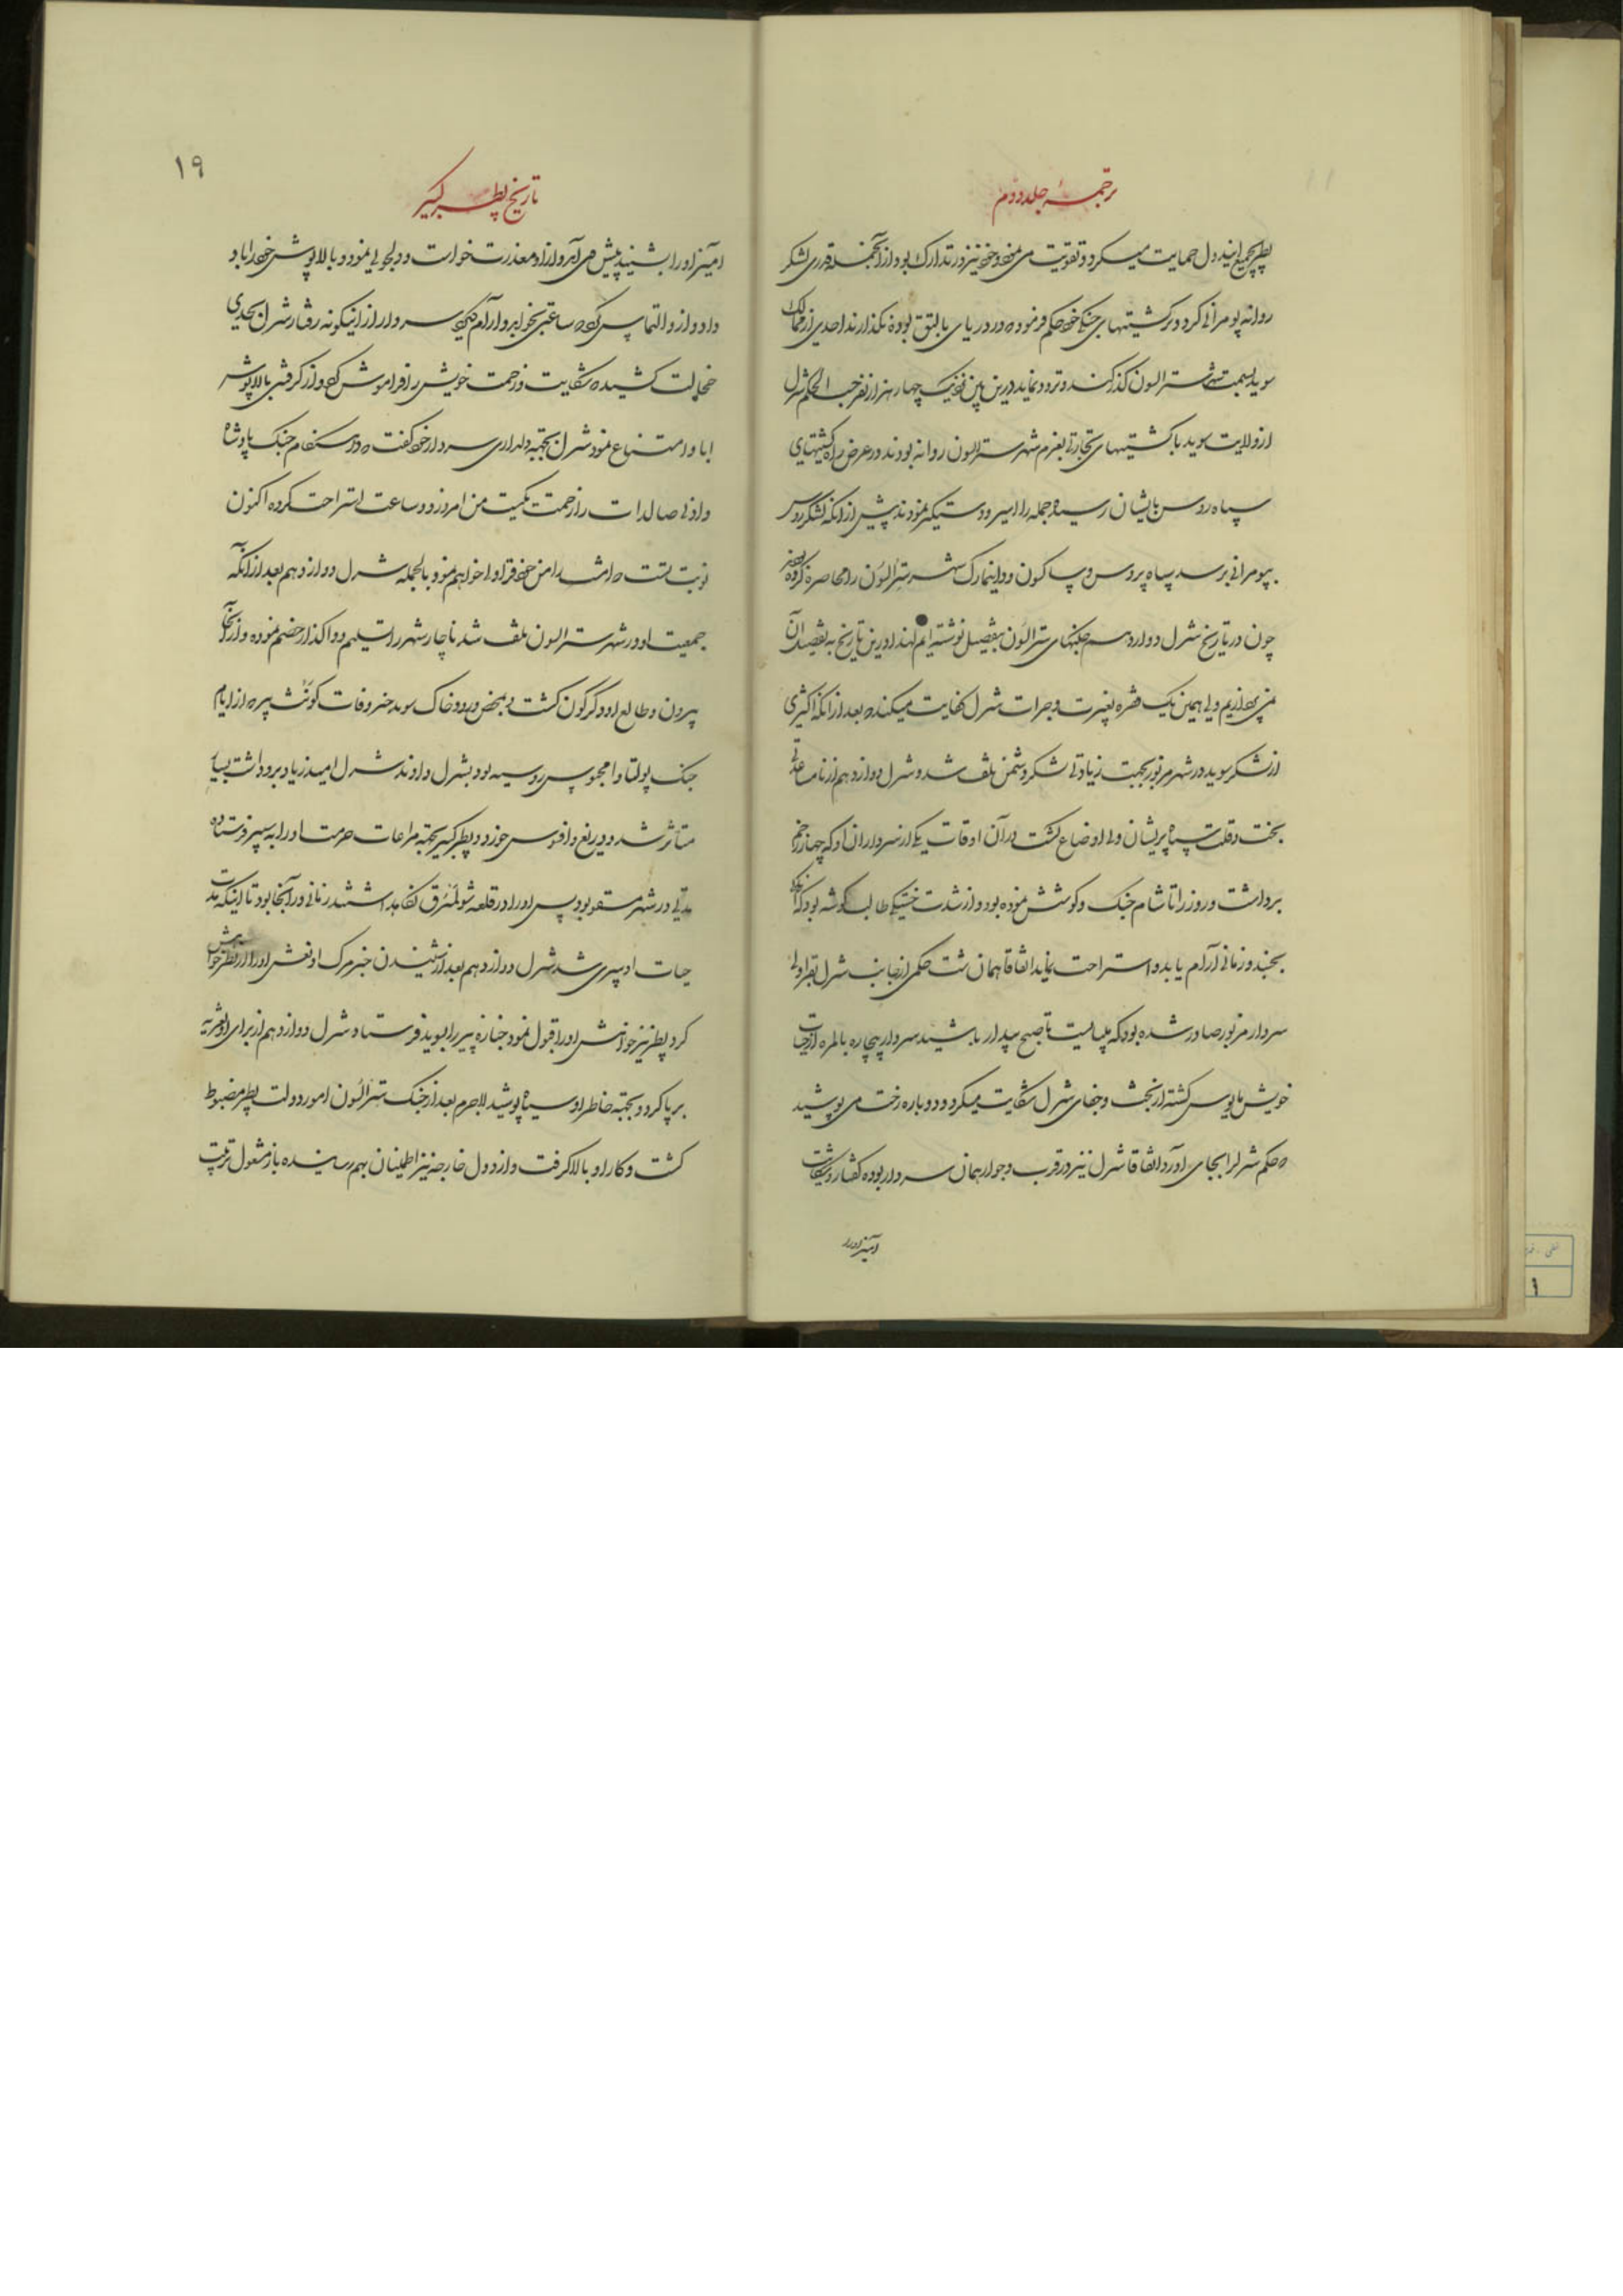 ترجمهٔ جلد دوم
پطر بجمیع این دول حمایت میکرد و تقویت می نمود خود نیز در تدارک بود از آنجمله قدری لشکر
روانه پومرانی کرد و بر کشتیهای جنگی خود حکم فرموده در دریای بالتق بوده نگذارند احدی از ممالک
سوید بسمت شهر سترالسون گذار کند و تردد نماید درین بین چهار هزار نفر حسب الحکم شرل
از ولایت سوید با کشتیهای تجارتی بعزم شهر سترالسون روانه بودند در عرض راه کشتیهای
سپاه روس بایشان رسیده جمله را اسیر و دستگیر نمودند پیش از آنکه لشکر روس
بپومرانی برسد سپاه پروس و ساکسون و دانیمارک شهر سترالسون را محاصره کرده بودند
چون در تاریخ شرل دوازدهم جنگهای سترالسون بتفصیل نوشته ایم لهذا درین تاریخ به تفصیل آن
نمی پردازیم ولی همین یک فقره بغیرت و جرات شرل کفایت میکند که بعد از آنکه اکثری
از لشکر سوید در شهر مزبور بجهت زیادتی لشکر دشمن تلف شد و شرل دوازدهم از نامساعدتی
بخت و قلت سپاه پریشان و اوضاع گشت در آن اوقات یکی از سرداران او که چهار زخم
برداشت و روز را تا شام جنگ و کوشش نموده بود و از شدت خستگی طالب گوشه بود که آنجا
بخسبد و زمانی آرام یابد و استراحت نماید اتفاقا همان شب حکمی از جانب شرل بقراولی
سردار مزبور صادر شده بود که می بایست تا صبح بیدار باشند سردار بیچاره بالمره از حیات
خویش مأیوس گشته از بخت و جفای شرل شکایت میکرد و دوباره رخت می پوشید
که حکم شرل را بجای آورد اتفاقا شرل نیز در قرب و جوار همان سردار بوده گفتار شکایت
آمیز او را
۱۹
تاریخ پطر کبیر
آمیز او را بشنید پیش می آمد و از او معذرت خواست و دلجویی نمود و بالاپوش خود را باو
داد و از او التماس کرد که ساعتی بخوابد و آرام گیرد سردار از اینگونه رفتار شرل بحدی
خجالت کشیده شکایت و زحمت خویش را فراموش کرد و از گرفتن بالاپوش
ابا و امتناع نمود شرل بجهة دلداری سردار خود گفت که در هنگام جنگ پادشاه
و ادنی صالدات را زحمت یکیست من امروز دو ساعت استراحت کرده اکنون
نوبت تست که امشب را من خود قراولی خواهم نمود بالجمله شرل دوازدهم بعد از آنکه
جمعیت او در شهر سترالسون تلف شد ناچار شهر را تسلیم و واگذار خصم نموده و از آنجا
بیرون و طالع او دگرگون گشت و بمحض ورود خاک سوید خبر وفات کونت پیر که از ایام
جنگ پولتاوا محبوس روسیه بود بشرل دادند شرل امید زیاد برو داشت بسیار
متأثر شد و دریغ و افسوس خورد و پطر کبیر بجهة مراعات حرمت او را به سیبر فرستاده
مدتی در شهر مسقو بود پس او را در قلعه شولسبرق نگاه داشتند زمانی در آنجا بود تا اینکه مدت
حیات او سپری شد شرل دوازدهم بعد از شنیدن خبر مرگ او نعش او را از پطر خواهش
کرد پطر نیز خواهش او را قبول نمود جنازه پیر را بسوید فرستاد شرل دوازدهم از برای او تعزیه
بر پا کرد و بجهة خاطر او سیاه پوشید لاجرم بعد از جنگ سترالسون امور دولت پطر مضبوط
گشت و کار او بالا گرفت و از دول خارجه نیز اطمینان بهم رسانیده باز مشغول ترتیب